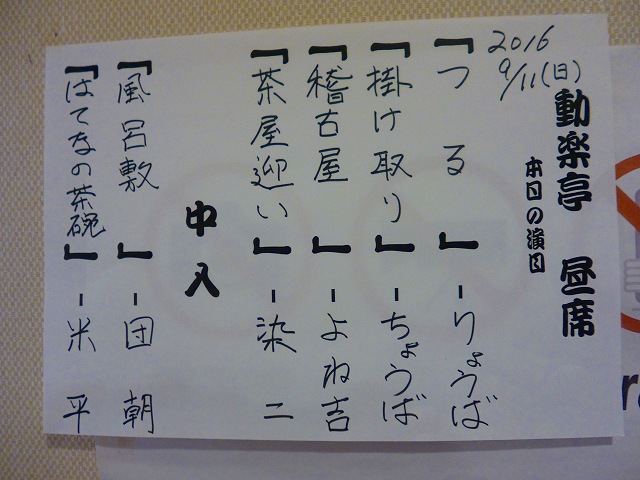 2016
9/11(日)
動楽亭 昼席
本日の演目
「つる」-りょうば
「掛け取り」-ちょうば
「稽古屋」-よね吉
「茶屋迎い」-染二
中入
「風呂敷」-団朝
「はてなの茶碗」-米平